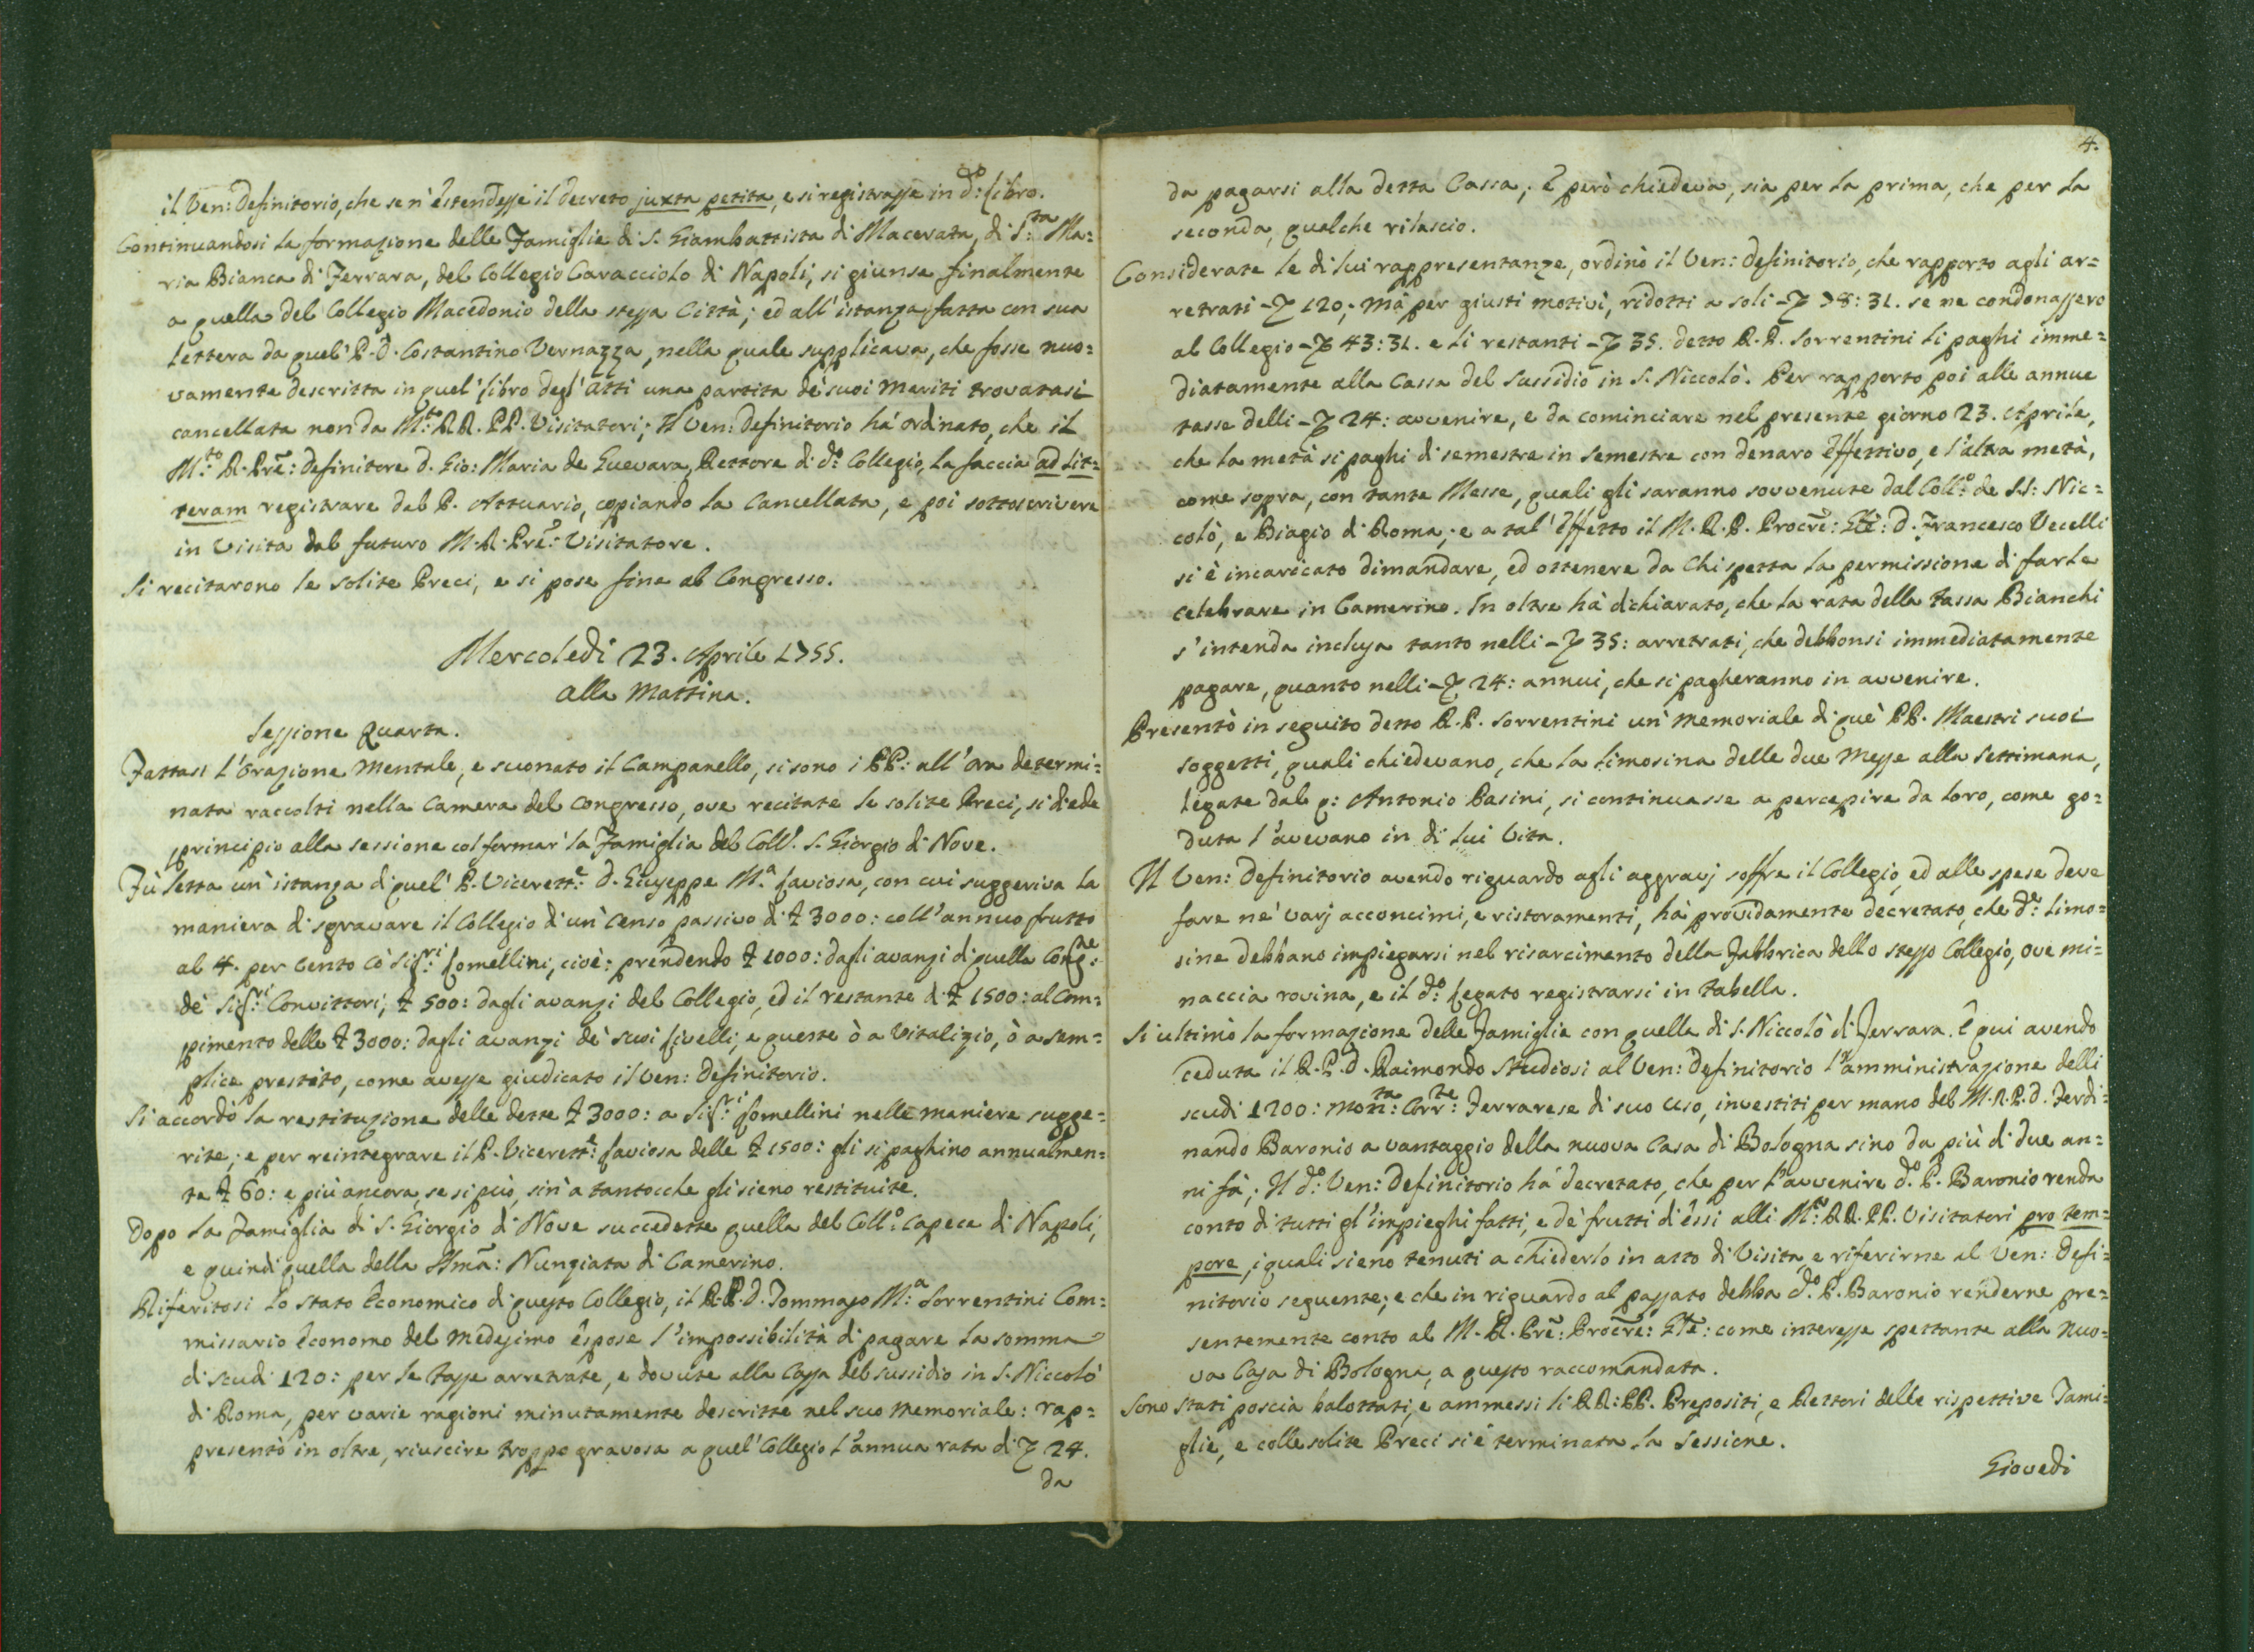 il Ven: Definitorio, che se n'estendesse il decreto juxta petita, e si registrasse in d:º Libro.
Continuandosi la formazione delle Famiglie di S. Giambattista di Macerata, di S:ta Ma=
ria Bianca di Ferrara, del Collegio Caracciolo di Napoli, si giunse finalmente
a quella del Collegio Macedonio della stessa Città; ed all'istanza fatta con sua
lettera da quel' P. D. Costantino Vernazza, nella quale supplicava, che fosse nuo=
vamente descritta in quel' libro degl'atti una partita de' suoi meriti trovatasi
cancellata non da M:to RR. PP. Visitatori; Il Ven: Definitorio há ordinato, che il
M:to R. Prẽ: Definitore D. Gio: Maria de Guevara, Rettore di d:º Collegio, la faccia ad lit=
teram registrare dal P. Attuario, copiando la Cancellata, e poi sottoscrivere
in Visita dal futuro M. R. Prẽ: Visitatore.
Si recitarono le solite Preci, e si pose fine al Congresso.
Mercoledì 23. Aprile 1755.
alla Mattina.
Sessione Quarta.
Fattasi l'Orazione Mentale, e suonato il Campanello, si sono i PP: all'ora determi=
nata raccolti nella Camera del Congresso, ove recitate le solite Preci, si diede
principio alla sessione col formar' la Famiglia del Coll.º S. Giorgio di Nove.
Fù letta un'istanza di quel' P. Vicerett:e D. Giuseppe M.a Saviosa, con cui suggeriva la
maniera di sgravare il Collegio di un' Censo passivo di ₤ 3000: coll'annuo frutto
al 4. per Cento cò Sig:ri Lomellini, cioè: prendendo ₤ 1000: dagli avanzi di quella Cong:ne
de' Sig:ri Convittori, ₤ 500: dagli avanzi del Collegio, ed il restante di ₤ 1500: al Com=
pimento delle ₤ 3000: dagli avanzi de' suoi livelli, e queste ò a Vitalizio, ò a sem=
plice prestito, come avesse giudicato il Ven: Definitorio.
Si accordò la restituzione delle dette ₤ 3000: a Sig:ri Lomellini nelle maniere sugge=
rite; e per reintegrare il P. Vicerett:e Saviosa delle ₤ 1500: gli si paghino annualmen=
te ₤ 60: e più ancora, se si può, sin'a tantocche gli sieno restituite.
Dopo la Famiglia di S. Giorgio di Nove succedette quella del Coll:º Capece di Napoli,
e quindi quella della SSmã: Nunziata di Camerino.
Riferitosi lo stato Economico di questo Collegio, il R. P. D. Tommaso M:a Sorrentini Com=
missario Economo del medesimo espose l'impossibilità di pagare la somma
di scudi 120: per le Tasse arretrate, e dovute alla Cassa del sussidio in S. Niccolò
di Roma, per varie ragioni minutamente descritte nel suo Memoriale: rap=
presentò in oltre, riuscire troppo gravosa a quel' Collegio l'annua rata di ꝟ 24.
da
4.
da pagarsi alla detta Cassa; E però chiedeva, sia per la prima, che per la
seconda, qualche rilascio.
Considerate le di lui rappresentanze, ordinò il Ven: Definitorio, che rapporto agli ar=
retrati ꝟ 120; Mà per giusti motivi, ridotti a soli ꝟ 78:31. se ne condonassero
al Collegio ꝟ 43:31. e li restanti ꝟ 35. detto R. P. Sorrentini li paghi imme=
diatamente alla Cassa del Sussidio in S. Niccolò. Per rapporto poi alle annue
tasse delli ꝟ 24: avvenire, e da cominciare nel presente giorno 23. Aprile,
che la metà si paghi di semestre in semestre con denaro Effettivo, e l'altra metà,
come sopra, con tante Messe, quali gli saranno sovvenute dal Coll:º de SS: Nic=
colò, e Biagio di Roma; e a tal' Effetto il M. R. P. Procrẽ: Glẽ: D. Francesco Vecelli
si è incaricato dimandare, ed ottenere da Chi spetta la permissione di farle
celebrare in Camerino. In oltre hà dichiarato, che la rata della Tassa Bianchi
s'intenda inclusa tanto nelli ꝟ 35: arretrati, che debbonsi immediatamente
pagare, quanto nelli ꝟ 24: annui, che si pagheranno in avvenire.
Presentò in seguito detto R. P. Sorrentini un' Memoriale di que' PP. Maestri suoi
soggetti, quali chiedevano, che la limosina delle due Messe alla Settimana,
legate dal q: Antonio Pasini, si continuasse a percepire da loro, come go=
duta l'avevano in di lui Vita.
Il Ven: Definitorio avendo riguardo agli aggravj soffre il Collegio, ed alle spese deve
fare ne' varj acconcimi, e ristoramenti, hà providamente decretato, che d:e limo=
sine debbano impiegarsi nel risarcimento della Fabbrica dello stesso Collegio, ove mi=
naccia rovina, e il d:º Legato registrarsi in Tabella.
Si ultimò la formazione delle Famiglie con quella di S. Niccolò di Ferrara. E qui avendo
ceduta il R. P. D. Raimondo Studiosi al Ven: Definitorio l'amministrazione delli
scudi 1200: mon:ta Corr:te Ferrarese di suo uso, investiti per mano del M. R. P. D. Ferdi=
nando Baronio a vantaggio della nuova Casa di Bologna sino da più di due an=
ni fà; Il d:º Ven: Definitorio há decretato, che per l'avvenire d:º P. Baronio renda
conto di tutti gl'impieghi fatti, e de' frutti di essi alli M:to RR. PP. Visitatori pro tem=
pore, i quali sieno tenuti a chiederlo in atto di Visita, e riferirne al Ven: Defi=
nitorio seguente; e che in riguardo al passato debba d:º P. Baronio renderne pre=
sentemente conto al M. R. Prẽ: Procrẽ: Glẽ: come interesse spettante alla Nuo=
va Casa di Bologna, a questo raccomandata.
Sono stati poscia balottati, e ammessi li RR: PP. Prepositi, e Rettori delle rispettive Fami=
glie, e colle solite Preci si è terminata la Sessione.
Giovedì